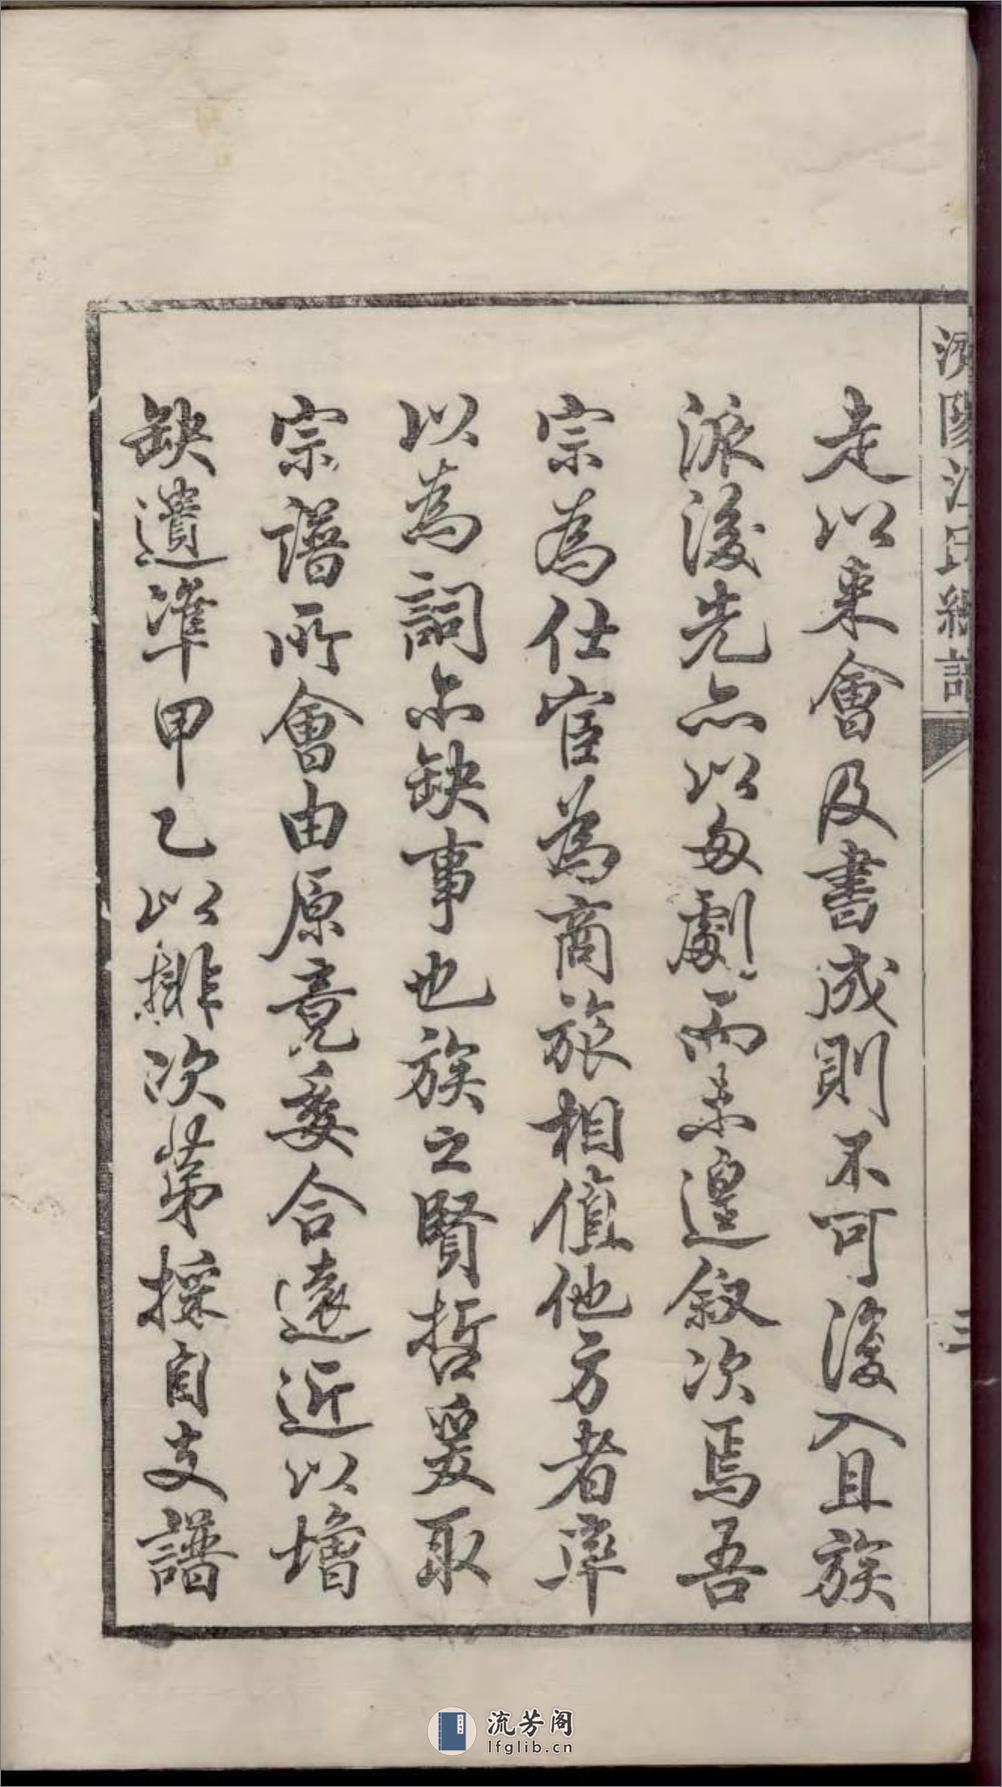 濟陽江氏總譜
三
走以来會及書成則不可後入且族
派後先亦以匆劇而未遑叙次焉吾
宗為仕宦為商旅相值他方者率
以為詞亦缺事也族之賢哲爰取
宗譜所會由原竟委合遠近以增
缺遺準甲乙以排次苐採自支譜
流芳阁
lfglib.cn